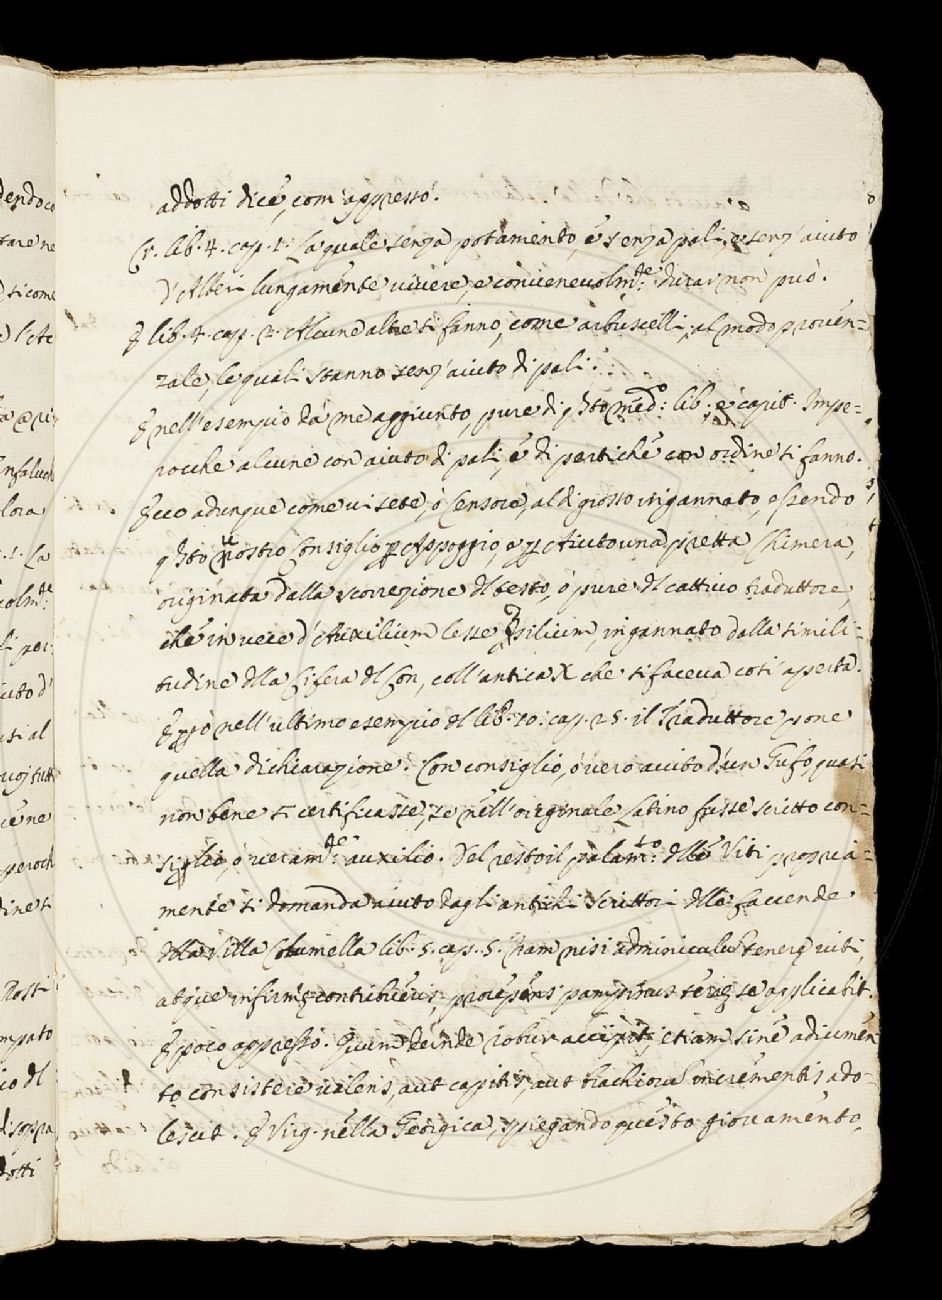 addotti dice, com' appresso.
Cr. lib. 4. cap. 1. La quale senza potamento, é senza pali, e senz' aiuto
d'Alberi lungamente vivere, e convenevolm.te durar non può.
E lib. 4. cap. 2. Alcune altre si fanno, come arbuscelli, al modo proven=
zale, le quali stanno senz' aiuto di pali.
E nell' esempio da me aggiunto, pure di qsto med.o lib. e capit. Impe=
rocche alcune con aiuto di pali, é di pertiche con ordine si fanno.
Ecco adunque come vi sete, o Censore, al di grosso ingannato, essendo
qsto vostro Consiglio p Appoggio, e p Aiuto una pretta Chimera,
originata dalla scorrezione dl testo, o pure dl cattivo traduttore,
che in vece d'Auxilium lesse silium, ingannato dalla simili=
tudine dlla Cifera dl Con, coll' antica X che si faceva così aperta.
E pò nell' ultimo esempio dl lib. 10. cap. 25. il Traduttore pone
quella dichiarazione. Con consiglio, ó vero aiuto d'un Gufo, quasi
non bene si certificasse, se nell' originale Latino fusse scritto con=
siglio, o veram.te auxilio. Del resto il palam.to dlle Viti propria=
mente si domanda aiuto dagli antichi Scrittori dlla faccende
dlla Villa Columella lib. 5. cap. 5. Nam nisi adminiculu tenere viti,
atque infirme contribueris, prorepens pampinus terre se applicabit.
E poco appresso. Quin deinde robur accipit, etiam sine adiumen
to consistere valens, aut capitis, aut brachiorũ incrementis ado=
lescit. E Virg. nella Georgica, spiegando questo giovamento,